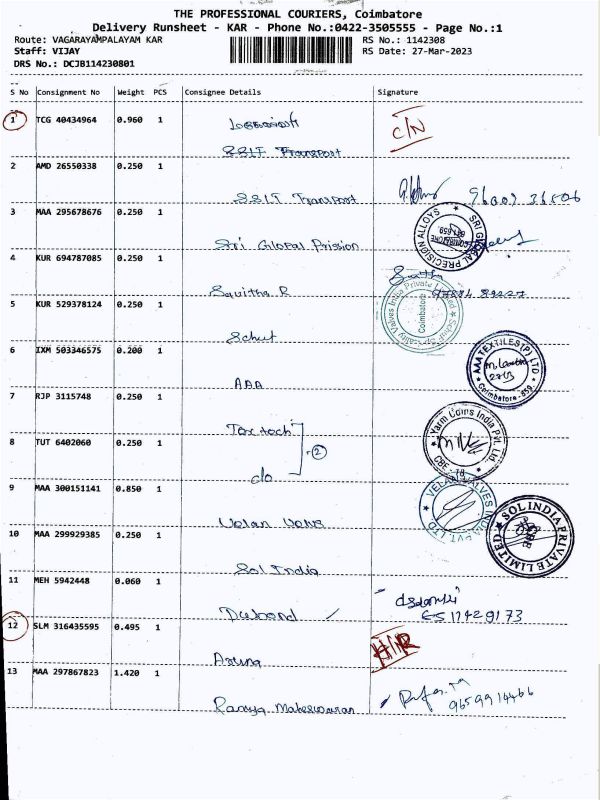 THE PROFESSIONAL COURIERS, Coimbatore
Delivery Runsheet - KAR - Phone No.:0422-3505555 - Page No.:1
Route: VAGARAYAMPALAYAM KAR RS No.: 1142308
Staff: VIJAY RS Date: 27-Mar-2023
DRS No.: DCJB114230801
S No Consignment No Weight PCS Consignee Details Signature
1 TCG 40434964 0.960 1 C/N
SSIT Transport
2 AMD 26550338 0.250 1
SSIT Transport
3 MAA 295678676 0.250 1
SRI GLOBAL PRECISION ALLOYS COIMBATORE
Sri Global Prission
4 KUR 694787085 0.250 1
5 KUR 529378124 0.250 1
Schuf Speciality Valves India Private Limited Coimbatore
6 IXM 503346575 0.200 1
AAA TEXTILES(P) LTD Coimbatore-659
AAA
7 RJP 3115748 0.250 1
Tex tech
Yarm Coins India Pvt. Ltd CBE - 18
8 TUT 6402060 0.250 1 2
c/o
9 MAA 300151141 0.850 1
VELAN VALVES INDIA PVT LTD
Velan Valve
10 MAA 299929385 0.250 1
SOL INDIA PRIVATE LIMITED CBE
Sol India
11 MEH 5942448 0.060 1
12 SLM 316435595 0.495 1
Aruna
13 MAA 297867823 1.420 1
9659914466
Ramya Maheswaran